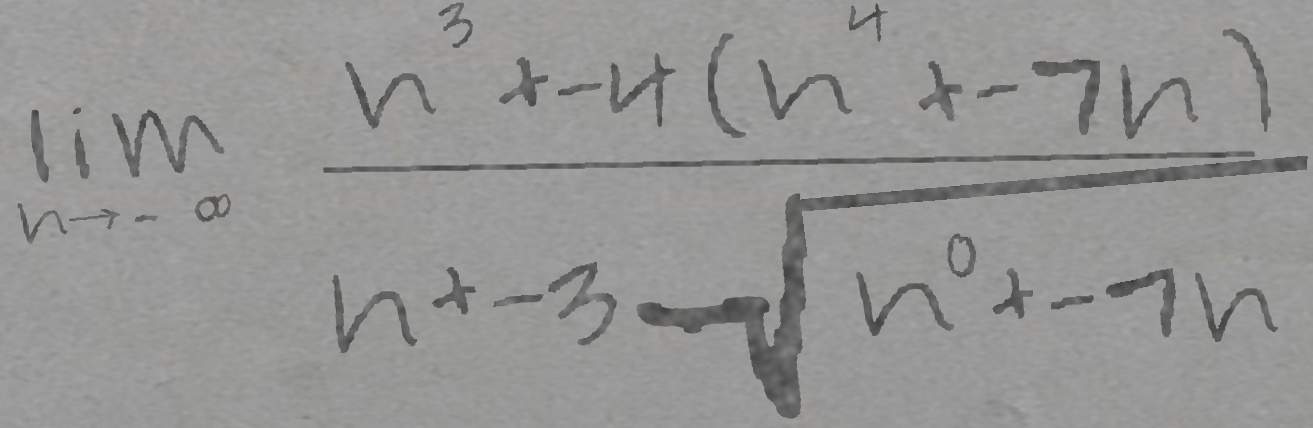 lim n→-∞ \frac{n^3+-4(n^4+-7n)}{n+-3-\sqrt{n^0+-7n}}